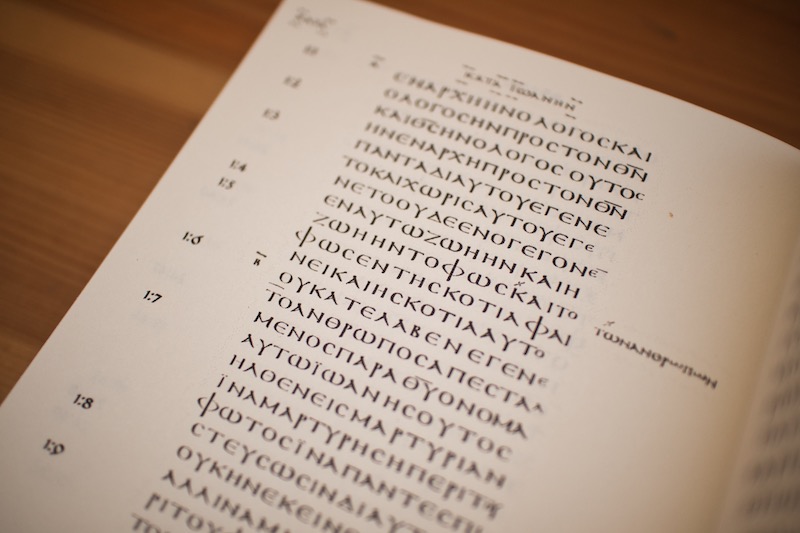 ΚΑΤΑ ΙΩΑΝΗΝ
1:1
ΕΝΑΡΧΗΗΝΟΛΟΓΟϹΚΑΙ
1:2
ΟΛΟΓΟϹΗΝΠΡΟϹΤΟΝΘ̅Ν̅
1:3
ΚΑΙΘ̅Ϲ̅ΗΝΟΛΟΓΟϹΟΥΤΟϹ
ΗΝΕΝΑΡΧΗΠΡΟϹΤΟΝΘ̅Ν̅
ΠΑΝΤΑΔΙΑΥΤΟΥΕΓΕΝΕ
1:4
ΤΟΚΑΙΧΩΡΙϹΑΥΤΟΥΕΓΕ
1:5
ΝΕΤΟΟΥΔΕΕΝΟΓΕΓΟΝΕ̅
ΕΝΑΥΤΩΖΩΗΗΝΚΑΙΗ
ΖΩΗΗΝΤΟΦΩϹΚΑΙΤΟ
ΤΩΝΑΝΘΡΩΠΩΝ
1:6
ΦΩϹΕΝΤΗϹΚΟΤΙΑΦΑΙ
ΝΕΙΚΑΙΗϹΚΟΤΙΑΑΥΤΟ
1:7
ΟΥΚΑΤΕΛΑΒΕΝΕΓΕΝΕ
ΤΟΑΝΘΡΩΠΟϹΑΠΕϹΤΑΛ
ΜΕΝΟϹΠΑΡΑΘ̅Υ̅ΟΝΟΜΑ
ΑΥΤΩΪΩΑΝΗϹΟΥΤΟϹ
ΗΛΘΕΝΕΙϹΜΑΡΤΥΡΙΑΝ
1:8
ΪΝΑΜΑΡΤΥΡΗϹΗΠΕΡΙΤΟΥ
ΦΩΤΟϹΪΝΑΠΑΝΤΕϹΠΙ
1:9
ϹΤΕΥϹΩϹΙΝΔΙΑΥΤ
ΟΥΚΗΝΕΚΕΙΝΟ
ΑΛΛΙΝΑΜ
ΡΙΤΟΥ